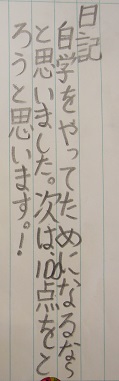 日記
自学をやってためになるなら
と思いました。次は、100点をと
ろうと思います。!